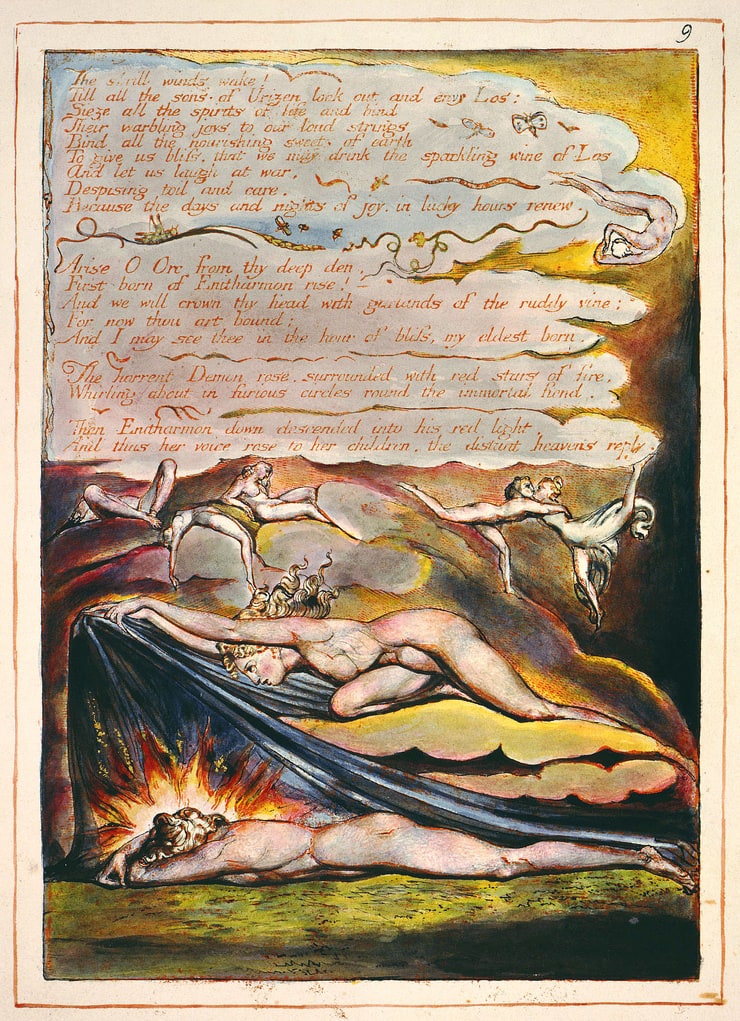 9
The shrill winds wake!
Till all the sons of Urizen look out and envy Los:
Sieze all the spirits of life and bind
Their warbling joys to our loud strings
Bind all the nourishing sweets of earth
To give us bliss, that we may drink the sparkling wine of Los
And let us laugh at war,
Despising toil and care,
Because the days and nights of joy, in lucky hours renew
Arise O Orc from thy deep den,
First born of Enitharmon rise!
And we will crown thy head with garlands of the ruddy vine;
For now thou art bound;
And I may see thee in the hour of bliss, my eldest born.
The horrent Demon rose, surrounded with red stars of fire,
Whirling about in furious circles round the immortal fiend.
Then Enitharmon down descended into his red light
And thus her voice rose to her children, the distant heavens reply